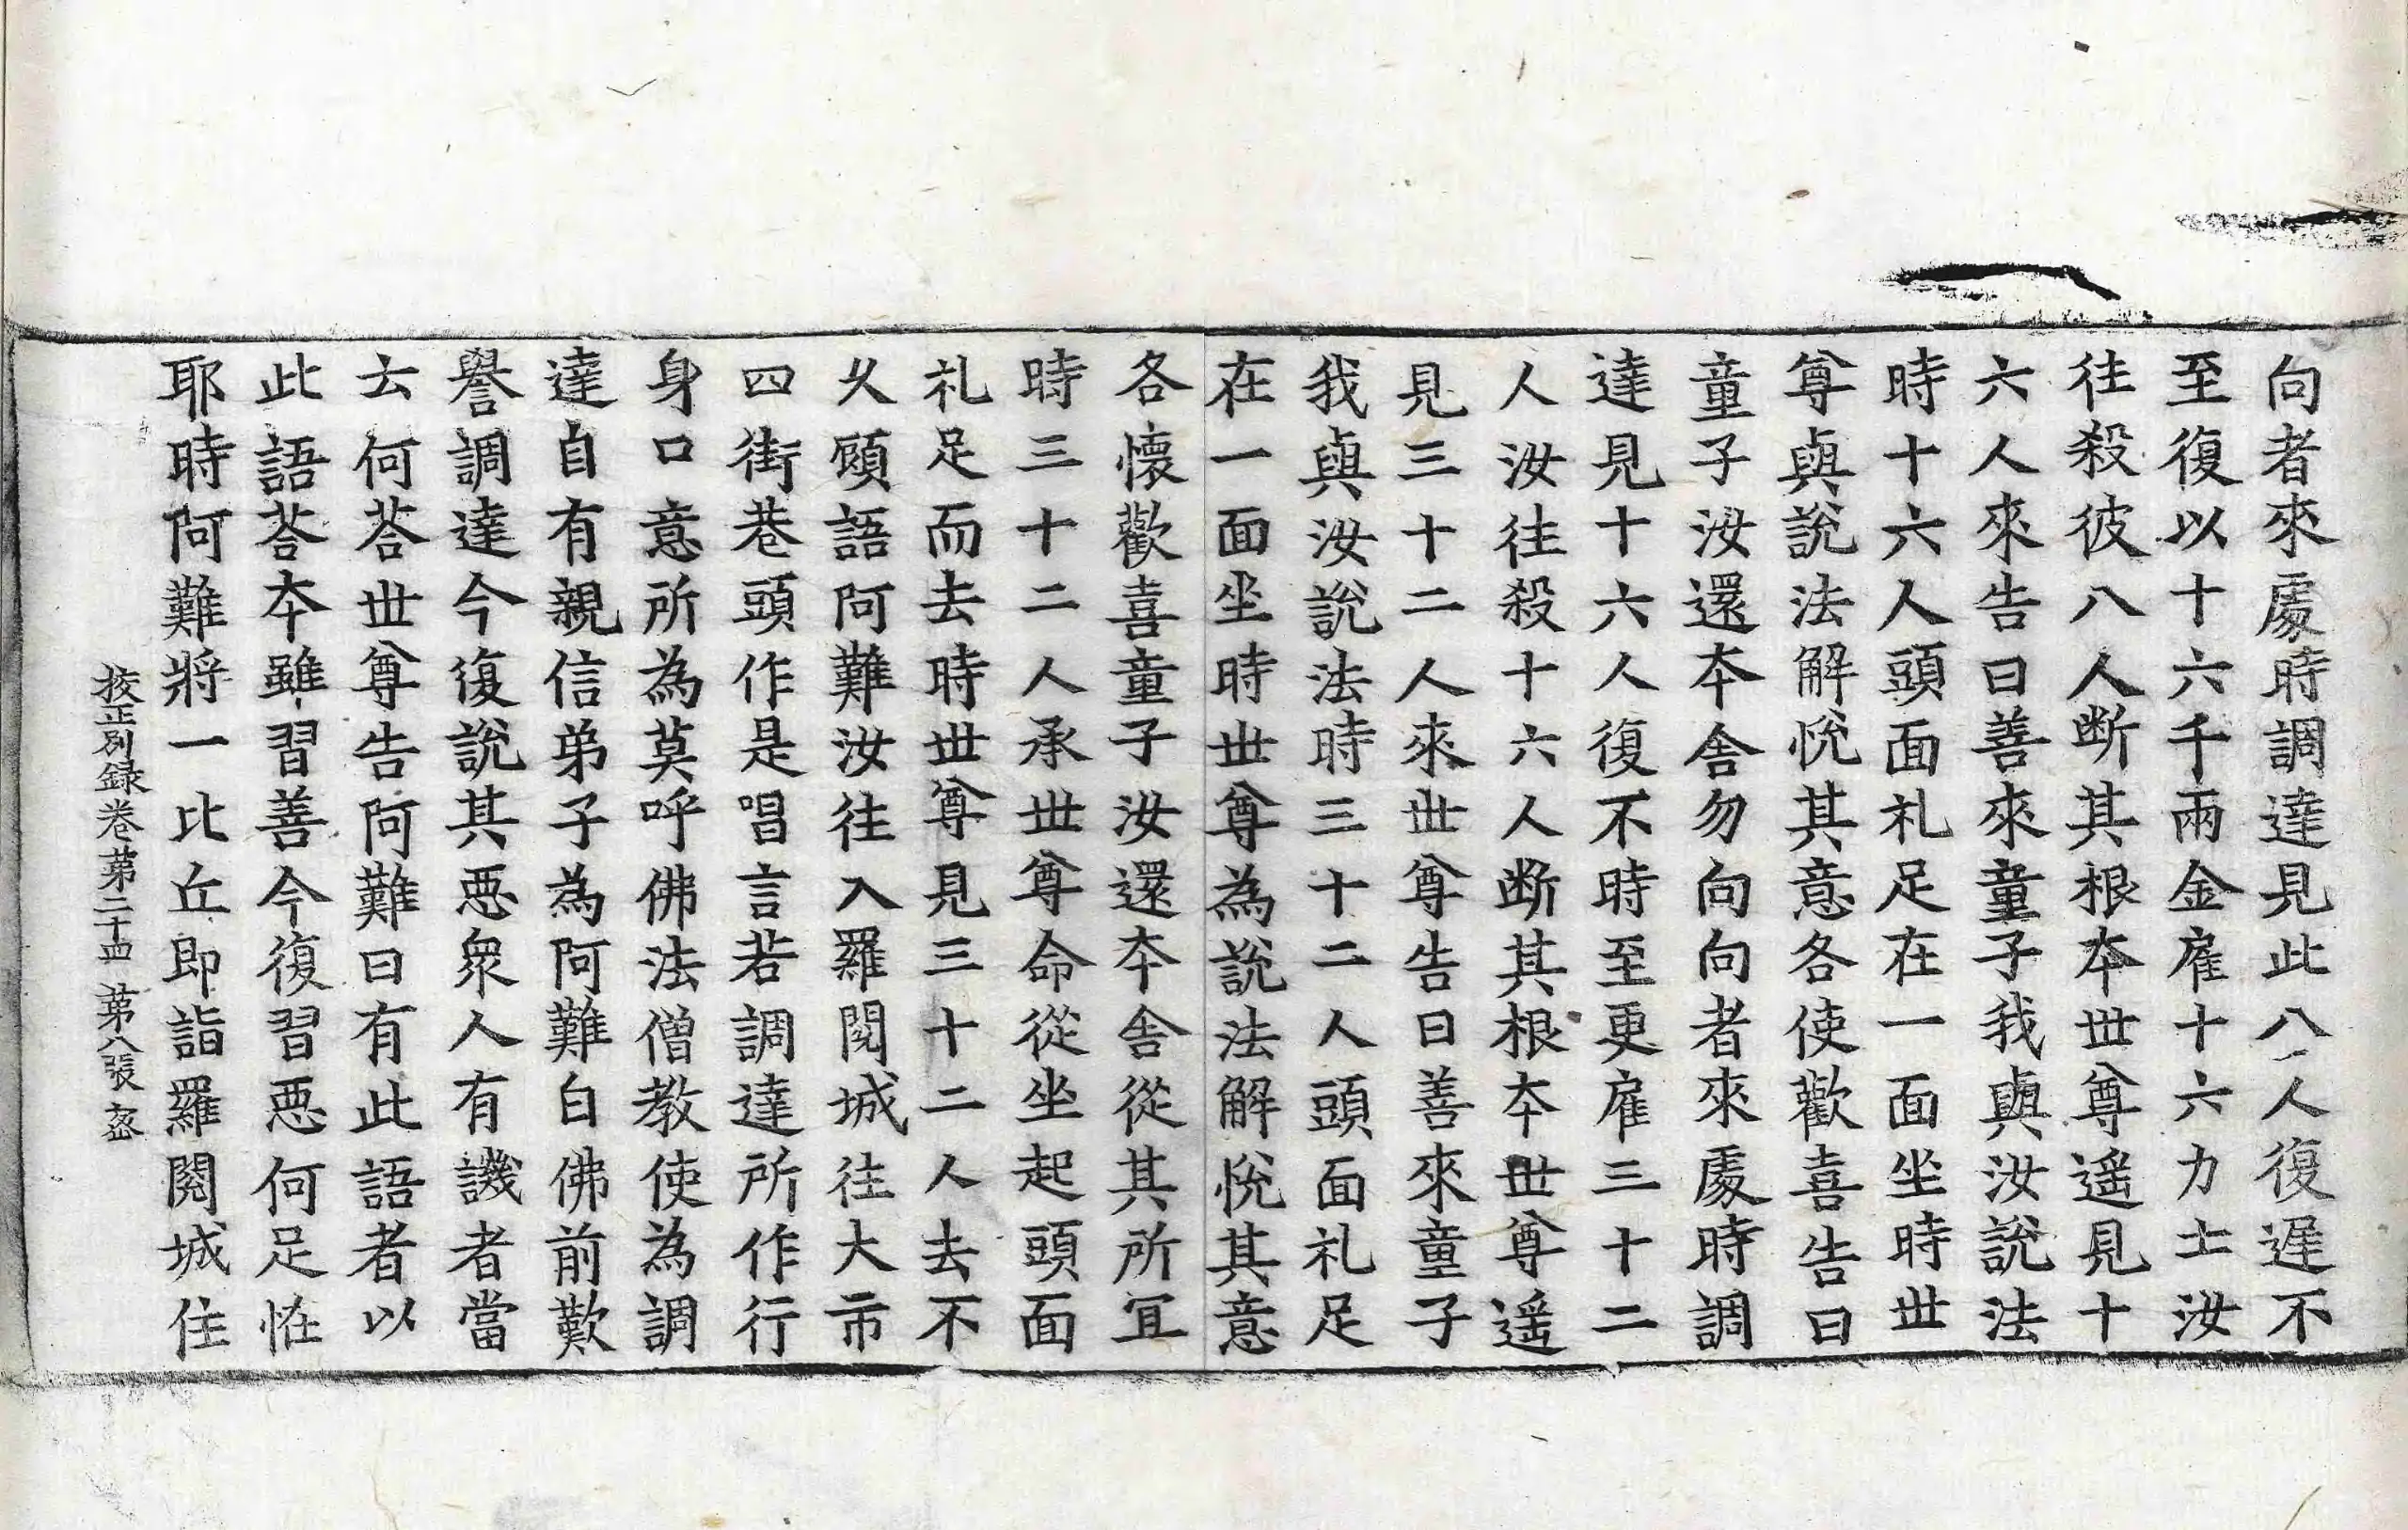 向者來處時調達見此八人復遅不
至復以十六千兩金雇十六力士汝
往殺彼八人断其根夲丗尊遥見十
六人來告曰善來童子我與汝說法
時十六人頭面礼足在一面坐時丗
尊與說法解悅其意各使歡喜告曰
童子汝還夲舎勿向向者來處時調
達見十六人復不時至更雇三十二
人汝往殺十六人断其根夲丗尊遥
見三十二人來丗尊告曰善來童子
我與汝說法時三十二人頭面礼足
在一面坐時丗尊為說法解悅其意
各懷歡喜童子汝還夲舎從其所冝
時三十二人承丗尊命從坐起頭面
礼足而去時丗尊見三十二人去不
乆頋語阿難汝往入羅閱城往大市
四街巷頭作是唱言若調達所作行
身口意所為莫呼佛法僧教使為調
達自有親信弟子為阿難白佛前歎
譽調達今復說其惡衆人有譏者當
云何荅丗尊告阿難曰有此語者以
此語荅夲雖習善今復習惡何足恠
耶時阿難將一比丘即詣羅閱城住
挍正別録卷第二十四 第八張 宻